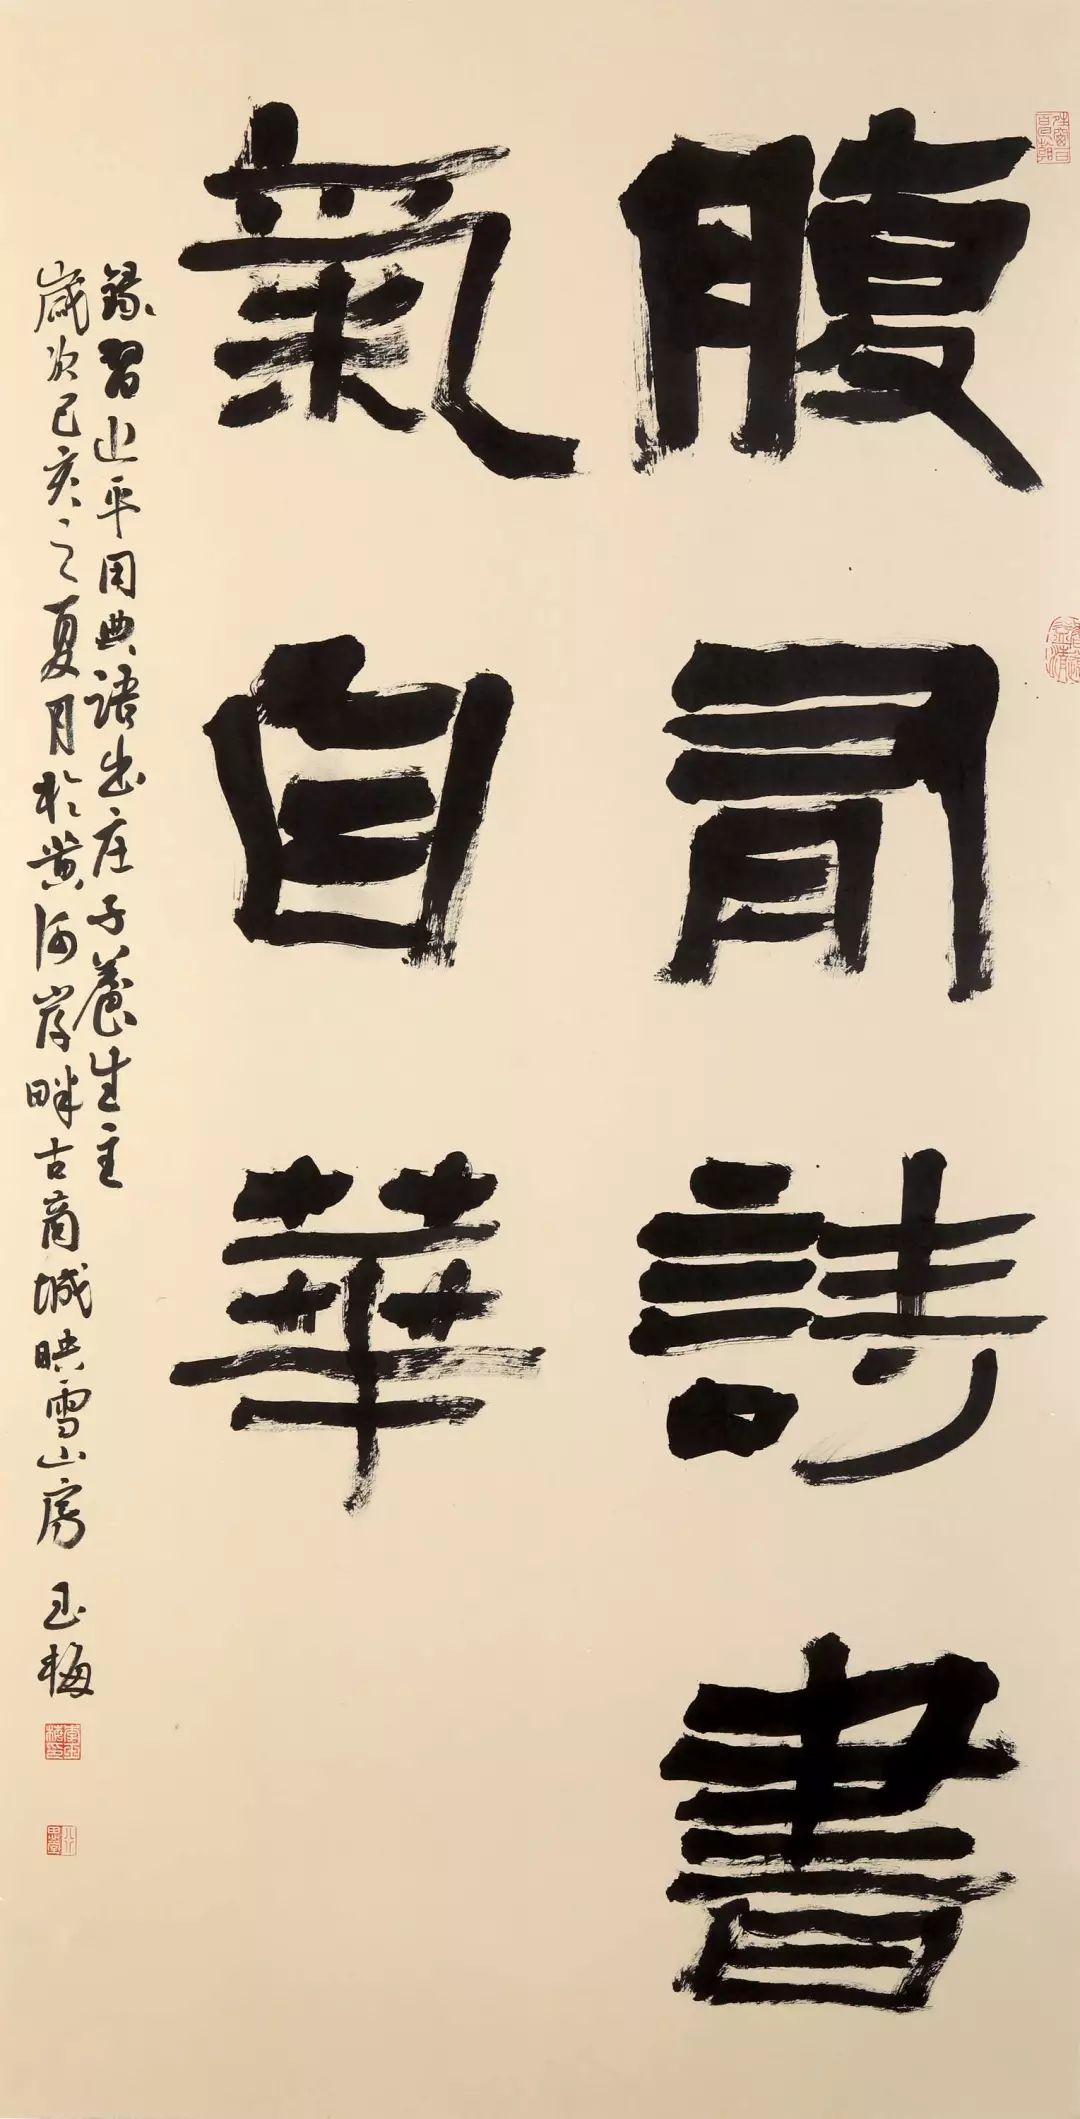 腹有詩書
氣自華
錄習近平用典語出庄子養生主
歲次己亥之夏月於黄河岸畔古商城映雪山房 玉梅